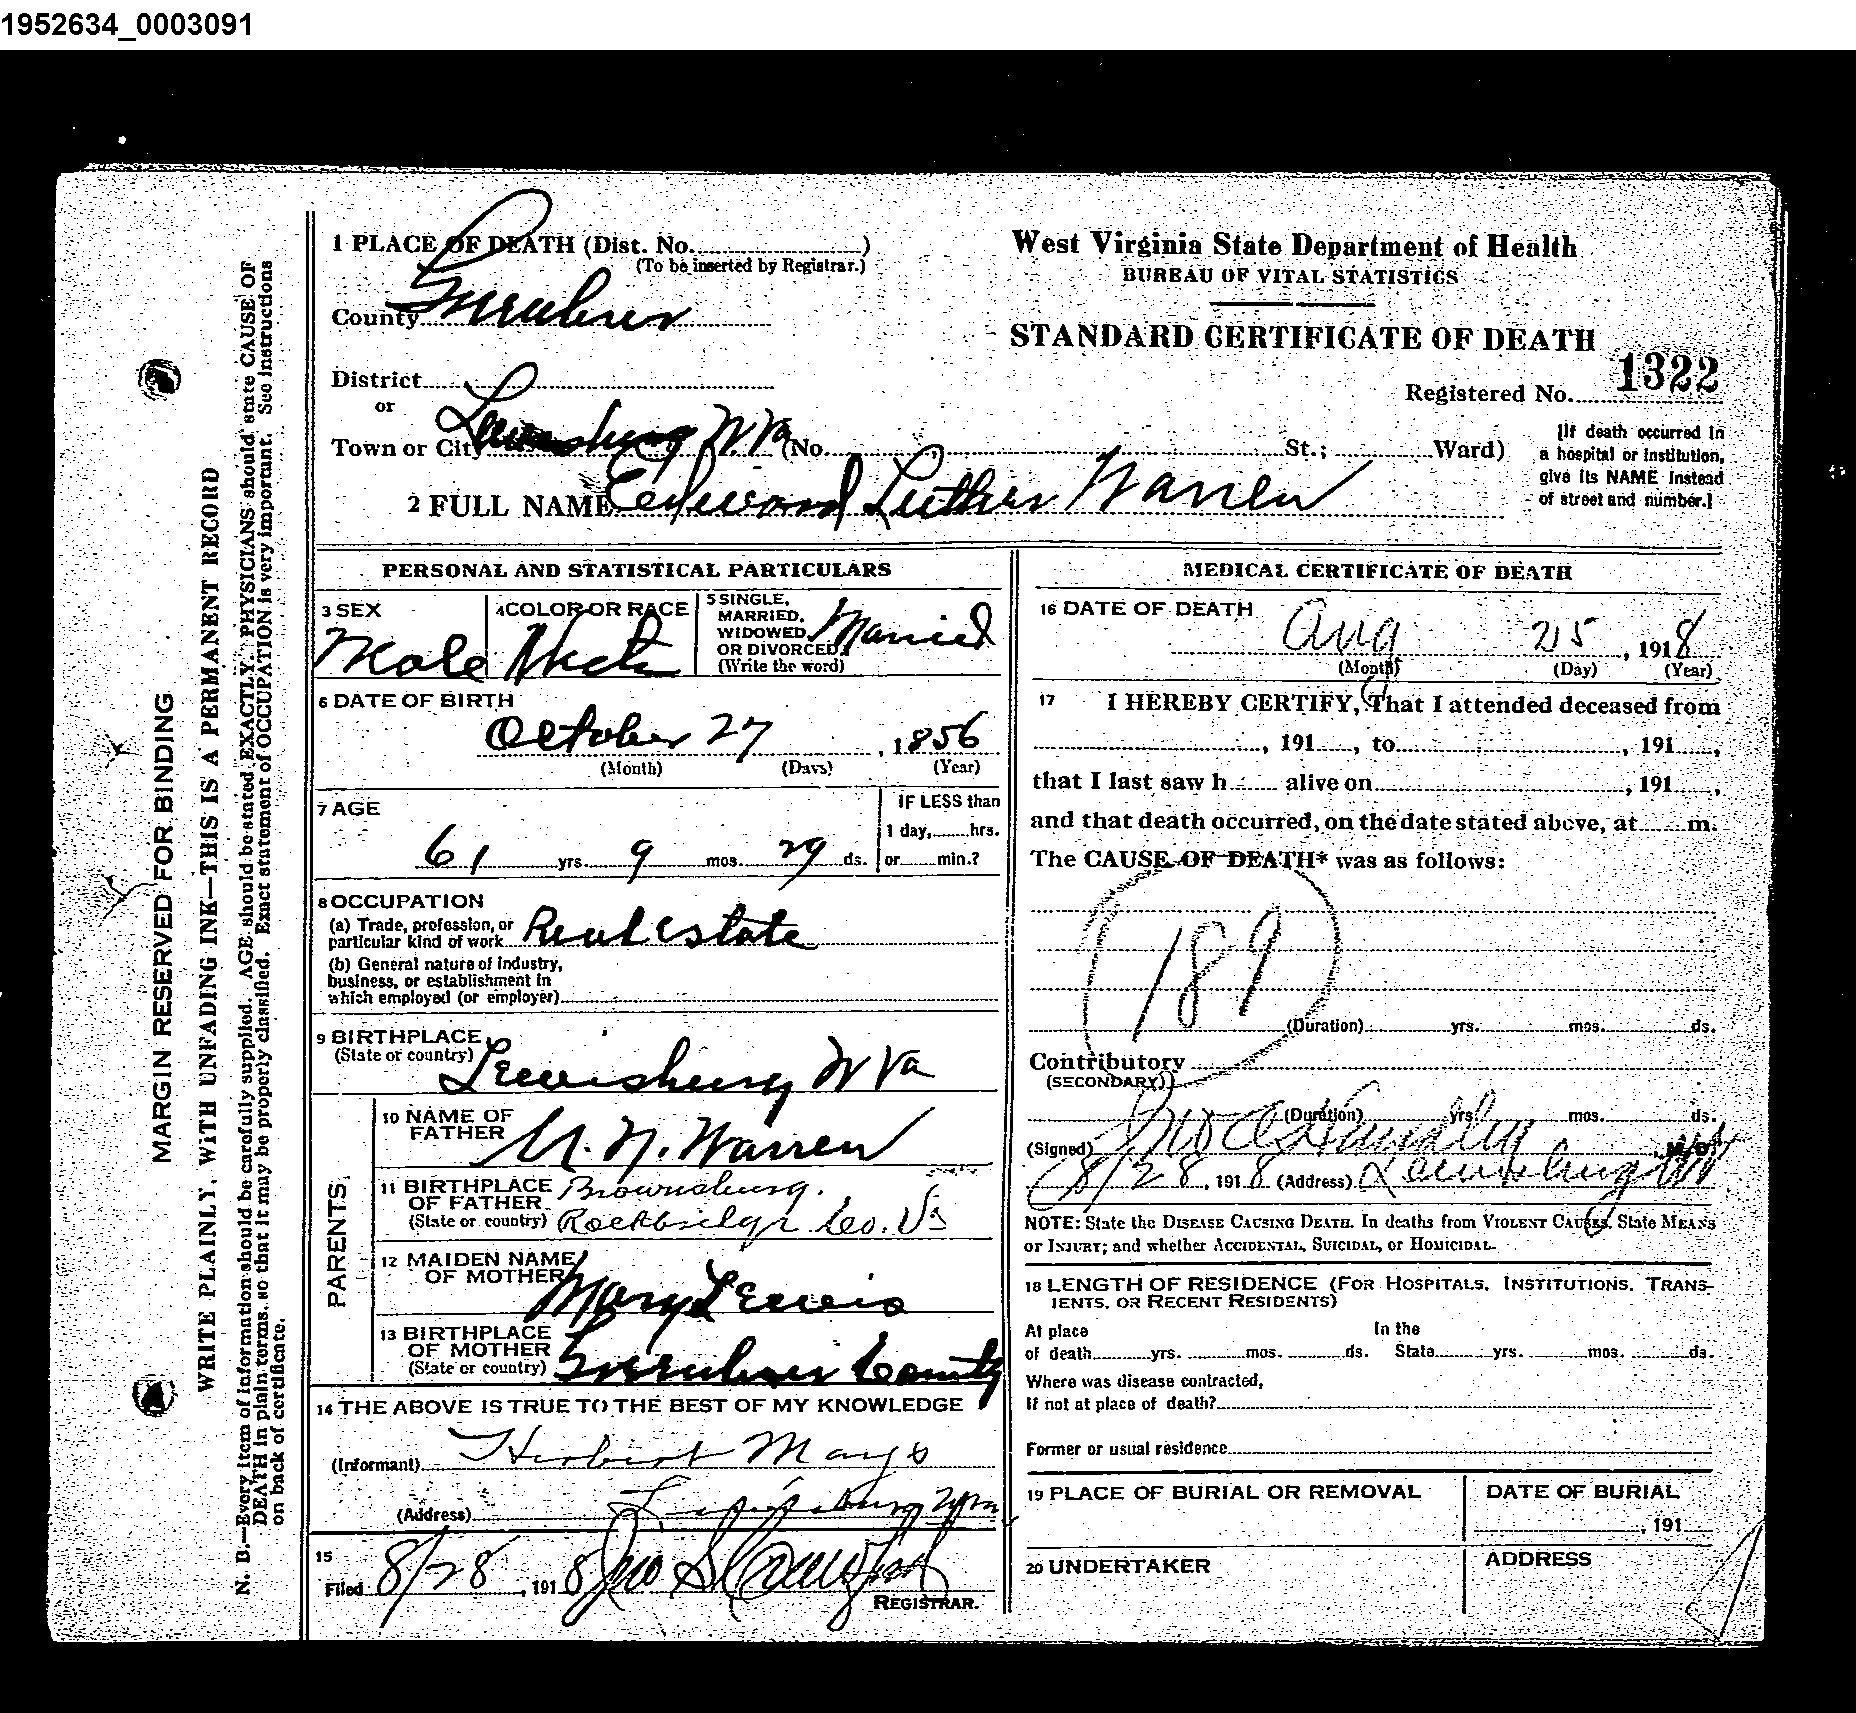 1952634_0003091
1 PLACE OF DEATH (Dist. No. )
(To be inserted by Registrar.)
County
District
or
Town or City Lewisburg W. Va (No. St.; Ward)
2 FULL NAME Edward Luther Warren
West Virginia State Department of Health
BUREAU OF VITAL STATISTICS
STANDARD CERTIFICATE OF DEATH
Registered No. 1322
[If death occurred in
a hospital or institution,
give its NAME instead
of street and number.]
MARGIN RESERVED FOR BINDING
WRITE PLAINLY, WITH UNFADING INK—THIS IS A PERMANENT RECORD
N. B.—Every item of information should be carefully supplied. AGE should be stated EXACTLY. PHYSICIANS should state CAUSE OF
DEATH in plain terms, so that it may be properly classified. Exact statement of OCCUPATION is very important. See instructions
on back of certificate.
PERSONAL AND STATISTICAL PARTICULARS
3 SEX
Male
4 COLOR OR RACE
5 SINGLE,
MARRIED,
WIDOWED,
OR DIVORCED
(Write the word)
Married
6 DATE OF BIRTH
October 27, 1856
(Month) (Days) (Year)
7 AGE
61 yrs. 9 mos. 29 ds.
IF LESS than
1 day, hrs.
or min.?
8 OCCUPATION
(a) Trade, profession, or
particular kind of work Real estate
(b) General nature of industry,
business, or establishment in
which employed (or employer)
9 BIRTHPLACE
(State or country) Lewisburg W Va
PARENTS
10 NAME OF
FATHER Warren
11 BIRTHPLACE
OF FATHER
(State or country)
Brownsburg.
Rockbridge Co. Va
12 MAIDEN NAME
OF MOTHER Mary Lewis
13 BIRTHPLACE
OF MOTHER
(State or country) County
14 THE ABOVE IS TRUE TO THE BEST OF MY KNOWLEDGE
(Informant) Herbert Mays
(Address)
15
Filed 8/28, 1918
REGISTRAR.
MEDICAL CERTIFICATE OF DEATH
16 DATE OF DEATH
Aug 25, 1918
(Month) (Day) (Year)
17 I HEREBY CERTIFY, That I attended deceased from
, 191 , to , 191 ,
that I last saw h alive on , 191 ,
and that death occurred, on the date stated above, at m.
The CAUSE OF DEATH* was as follows:
189
(Duration) yrs. mos. ds.
Contributory
(SECONDARY)
(Duration) yrs. mos. ds.
(Signed) M.D.
8/28, 1918 (Address)
NOTE: State the DISEASE CAUSING DEATH. In deaths from VIOLENT CAUSES, State MEANS
OR INJURY; and whether ACCIDENTAL, SUICIDAL, or HOMICIDAL.
18 LENGTH OF RESIDENCE (FOR HOSPITALS, INSTITUTIONS, TRANS-
IENTS, OR RECENT RESIDENTS)
At place In the
of death yrs. mos. ds. State yrs. mos. ds.
Where was disease contracted,
If not at place of death?
Former or usual residence
19 PLACE OF BURIAL OR REMOVAL
DATE OF BURIAL
, 191
20 UNDERTAKER
ADDRESS